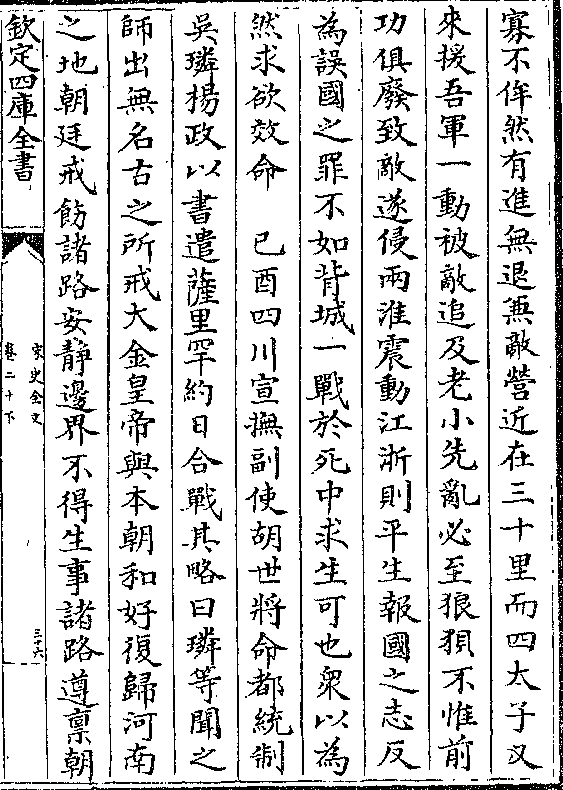 寡不侔然有進無退兼敵營近在三十里而四太子又
來援吾軍一動被敵追及老小先亂必至狼狽不惟前
功俱廢致敵遂侵兩淮震動江浙則平生報國之志反
為誤國之罪不如背城一戰於死中求生可也衆以為
然求欲效命　己酉四川宣撫副使胡世將命都統制
吳璘楊政以書遣薩里罕約日合戰其略曰璘等聞之
師出無名古之所戒大金皇帝與本朝和好復歸河南
之地朝廷戒飭諸路安静邊界不得生事諸路遵禀朝
欽定四庫全書
宋史全文
卷二十下
三十六